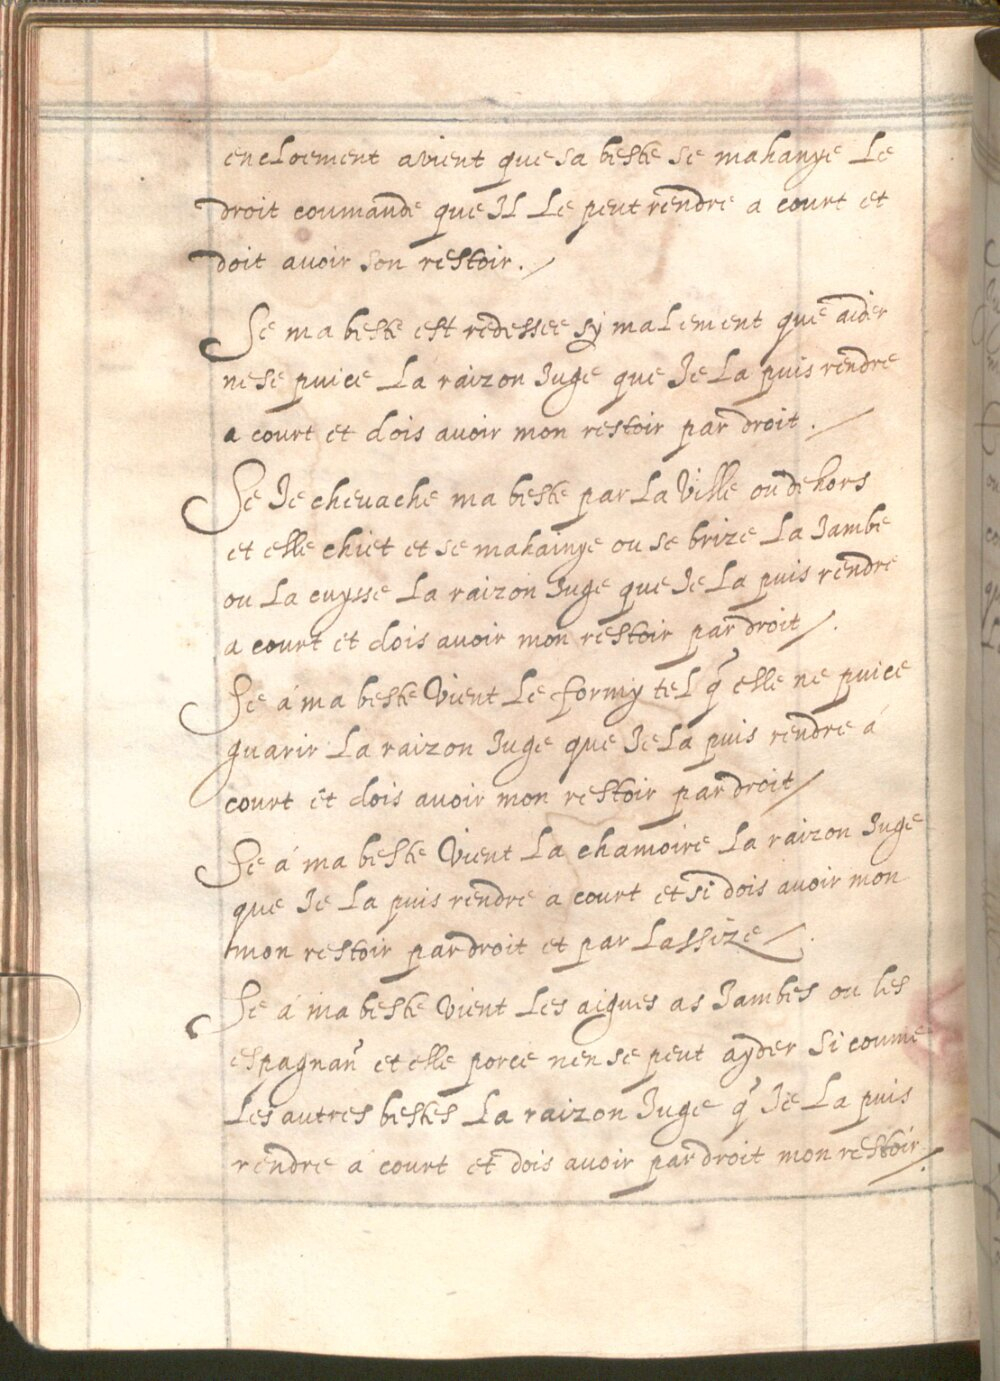 encloement avient que sa beste se mahanye Le
droit coumande que Il Le peut rendre a court et
doit avoir son restoir. /
Se ma beste est redessee sy malement que aider
ne se puice La raizon Iuge que Ie La puis rendre
a court et dois avoir mon restoir par droit . /
Se Ie cheuache ma beste par La Ville ou dehors
et elle chiet et se mahainye ou se brize La Iambe
ou La cuysse La raizon Iuge que Ie La puis rendre
a court et dois avoir mon restoir par droit /.
Se á ma beste Vient Le formy tel q̃ elle ne puice
guarir La raizon Iuge que Ie La puis rendre á
court et dois avoir mon restoir par droit /
Se á ma beste Vient La chamoire La raizon Iuge
que Ie La puis rendre a court et si dois avoir mon
mon restoir par droit et par Lassize /
Se á ma beste Vient Les aigues as Iambes ou les
espagnañ et elle porce nen se peut ayder si coume
Les autres bestes La raizon Iuge q̃ Ie La puis
rendre á court et dois avoir par droit mon restoir /.